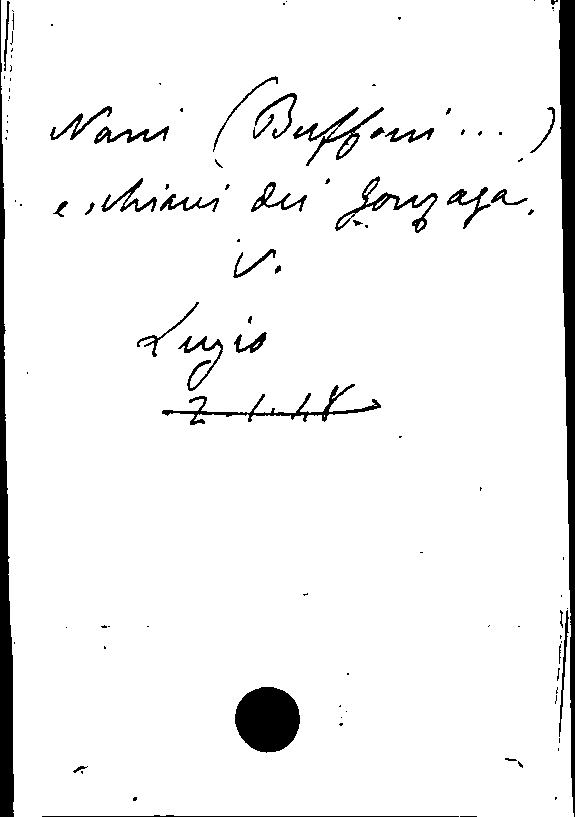 Nani (Buffoni...)
e schiavi dei Gonzaga.
V.
Luzio
2.1.18